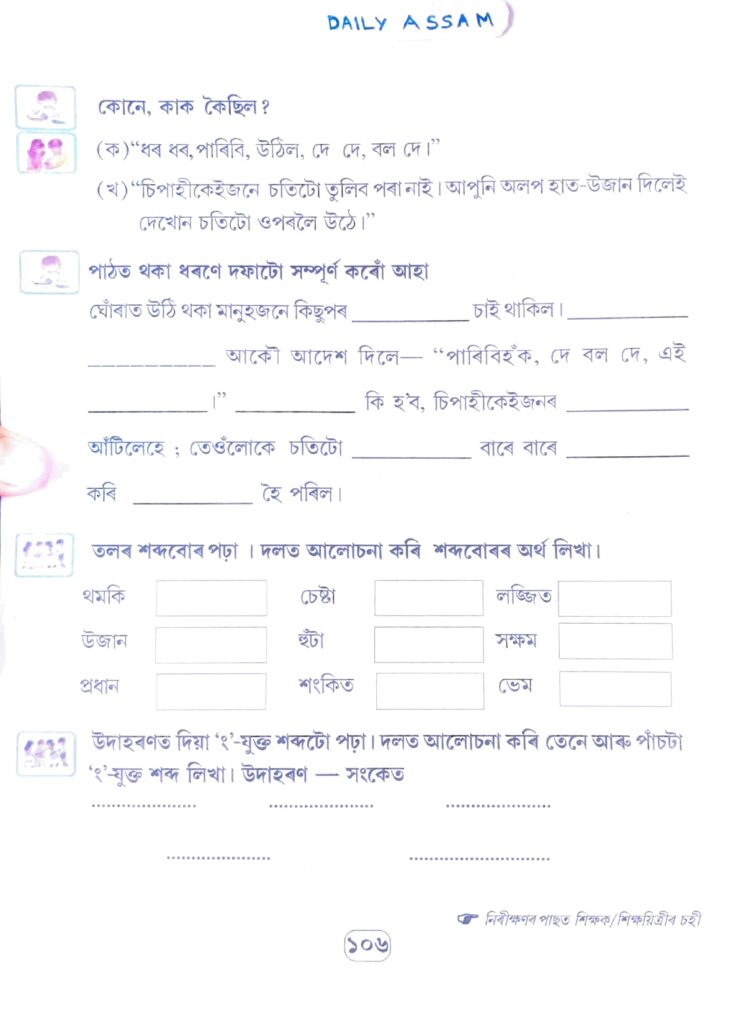 DAILY ASSAM
কোনে, কাক কৈছিল?
(ক) “ধৰ ধৰ, পাৰিবি, উঠিল, দে দে, বল দে।”
(খ) “চিপাহীকেইজনে চতিটো তুলিব পৰা নাই। আপুনি অলপ হাত-উজান দিলেই
দেখোন চতিটো ওপৰলৈ উঠে।”
পাঠত থকা ধৰণে দফাটো সম্পূৰ্ণ কৰোঁ আহা
ঘোঁৰাত উঠি থকা মানুহজনে কিছুপৰ ____________ চাই থাকিল। ____________
_________ আকৌ আদেশ দিলে— “পাৰিবিহঁক, দে বল দে, এই
____________।” ____________ কি হ’ব, চিপাহীকেইজনৰ ____________
আঁটিলেহে ; তেওঁলোকে চতিটো ____________ বাৰে বাৰে ____________
কৰি ____________ হৈ পৰিল।
তলৰ শব্দবোৰ পঢ়া । দলত আলোচনা কৰি শব্দবোৰৰ অৰ্থ লিখা।
থমকি চেষ্টা লজ্জিত
উজান হুঁটা সক্ষম
প্ৰধান শংকিত ভেম
উদাহৰণত দিয়া ‘ং’-যুক্ত শব্দটো পঢ়া। দলত আলোচনা কৰি তেনে আৰু পাঁচটা
‘ং’-যুক্ত শব্দ লিখা। উদাহৰণ — সংকেত
..................... ..................... .....................
..................... ............................
☛ নিৰীক্ষণৰ পাছত শিক্ষক/শিক্ষয়িত্ৰীৰ চহী
১০৬